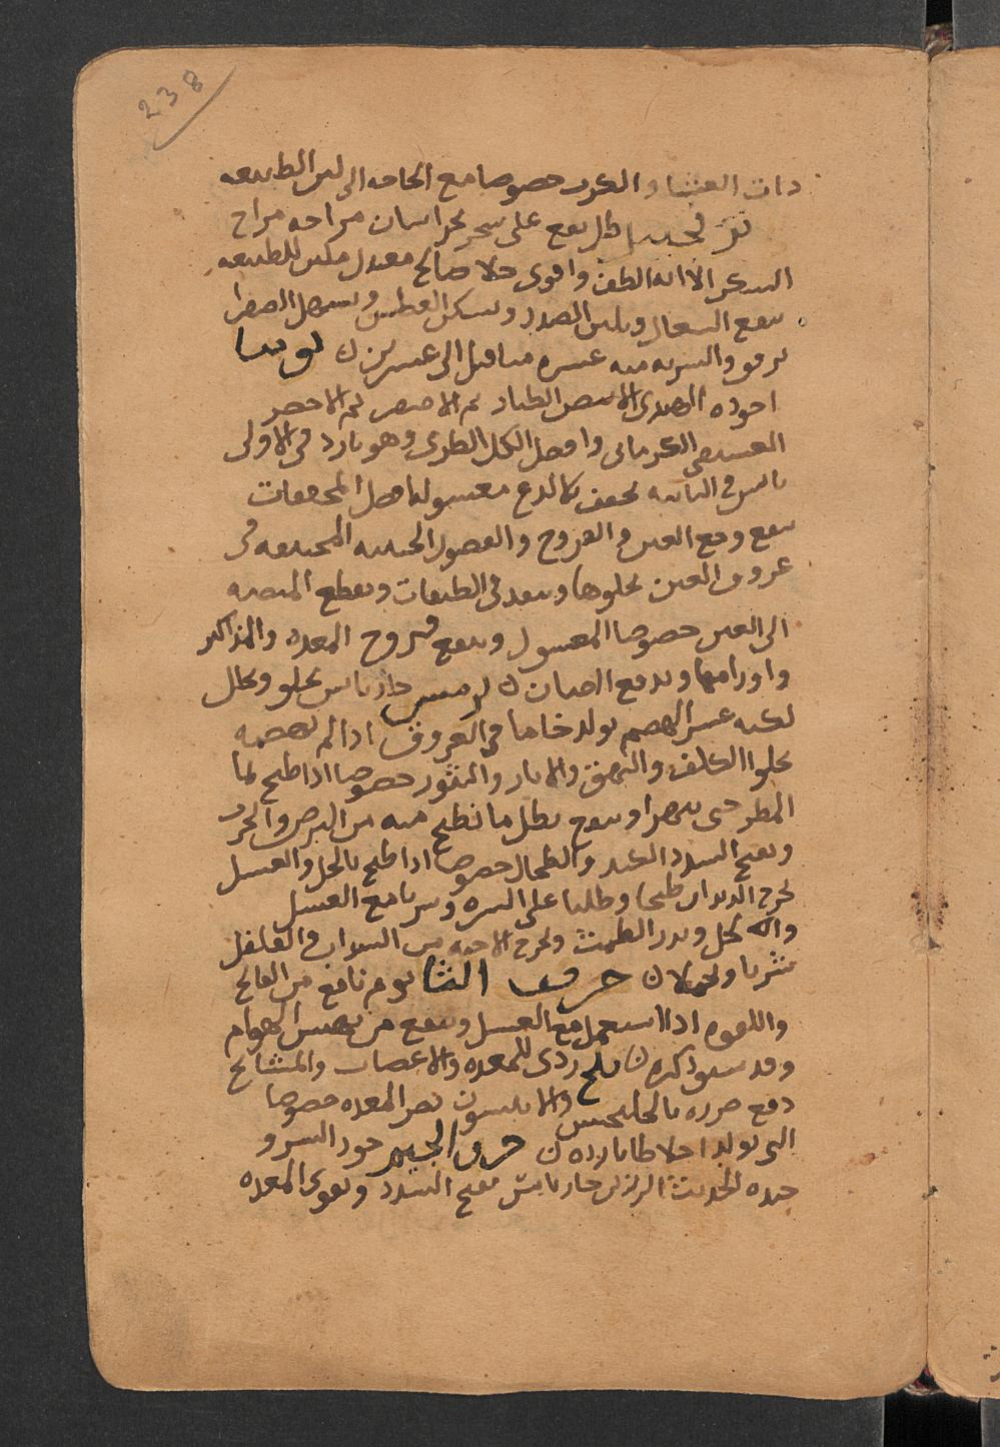 238
ذات الغشاء والكرب خصوصا مع الحاجه الى لين الطبيعه
ترنجبين طل يقع على شجر بخراسان مزاجه مزاج
السكر الا انه الطف واقوى جلا صالح معتدل ملين للطبيعه
ينفع السعال ويلين الصدر ويسكن العطش ويسهل الصفرا
برفق والشربه منه عشره مثاقيل الى عشرين توتيا
اجوده الهندى الابيض الطيار ثم الاصفر ثم الاخضر
الفستقى الكرمانى وافضل الكل الطرى وهو بارد فى الاولى
يابس فى الثانيه يجفف بلا لدع مغسولها افضل المجففات
ينفع وجع العين والقروح والفضول الخبيثه المحتبسه فى
عروق العين بجلوها وينفد فى الطبقات ويقطع المنصبه
الى العين خصوصا المغسول وينفع قروح المعده والمذاكير
واورامها ويدفع الصنان ترمس حار يابس يجلو ويحلل
لكنه عسر الهضم يولد خاما فى العروق اذا لم تهضمه
يجلوا الكلف والبهق والاثار والبثور خصوصا اذا طبخ بما
المطر حتى يتهرا وينفع بطل ما نطبخ منه من البرص والجرب
ويفتح السدد الكبد والطحال خصوصا اذا طبخ بالخل والعسل
يخرج الديدان طبخا وطليا على السره وشربا مع العسل
والخل ويدر الطمث ويخرج الاجنه مع السداب والفلفل
شربا وحمولا حرف الثا ثوم نافع من الفالج
واللقوه اذا استعمل مع العسل وينفع من نهش الهوام
وقد سبق ذكره ثلج ردى للمعده والاعصاب والمشائخ
دفع ضرره بالجلنجبين والانيسون تضر المعده خصوصا
التى تولد اخلاطا بارده حرف الجيم جوز السرو
جيده الحديث الرزين حار يابس يفتح السدد ويقوى المعده